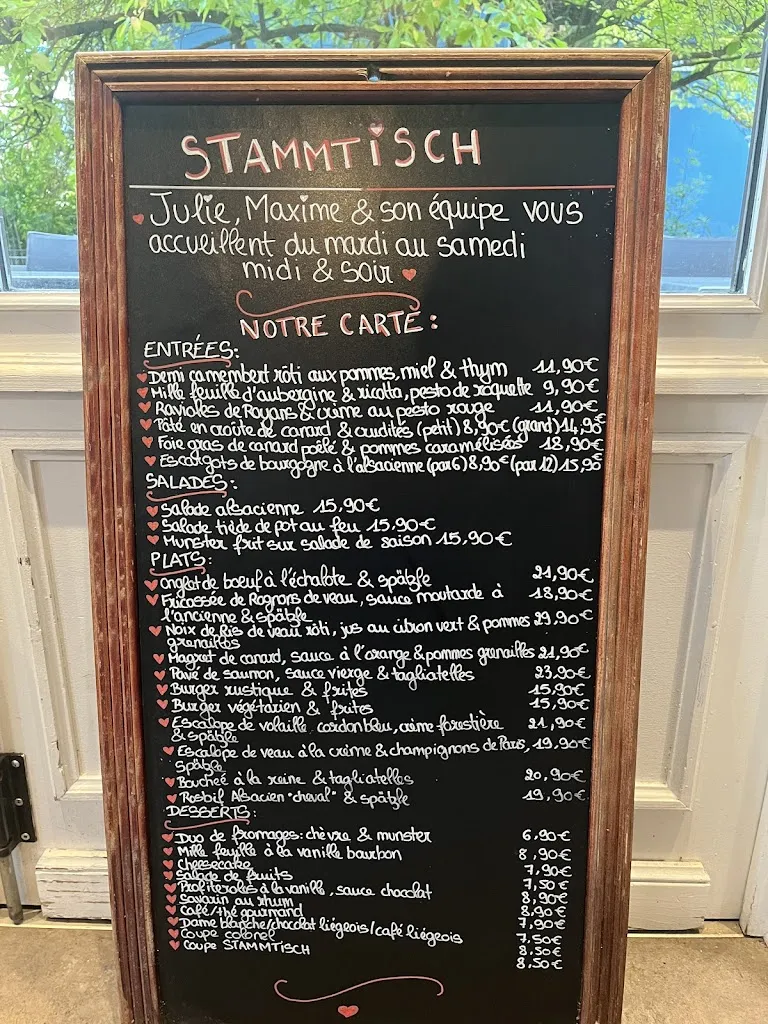 STAMMTISCH
Julie, Maxime & son équipe vous
accueillent du mardi au samedi
midi & soir
NOTRE CARTE :
ENTRÉES :
Demi camembert rôti aux pommes, miel & thym 11,90€
Mille feuille d'aubergine & ricotta, pesto de roquette 9,90€
Ravioles de Royans & crème au pesto rouge 11,90€
Pâté en croûte de canard & crudités (petit) 8,90€ (grand) 14,90€
Foie gras de canard poêlé & pommes caramélisées 18,90€
Escargots de bourgogne à l'alsacienne (par 6) 8,90€ (par 12) 15,90
SALADES :
Salade alsacienne 15,90€
Salade tiède de pot au feu 15,90€
Munster frit sur salade de saison 15,90€
PLATS :
Onglet de boeuf à l'échalote & spätzle 21,90€
Fricassée de Rognons de veau, sauce moutarde à 18,90€
l'ancienne & spätzle
Noix de Ris de veau rôti, jus au citron vert & pommes 29.90€
grenailles
Magret de canard, sauce à l'orange & pommes grenailles 21,90€
Pavé de saumon, sauce vierge & tagliatelles 23,90€
Burger rustique & frites 15,90€
Burger végétarien & frites 15,90€
Escalope de volaille cordon bleu, crème forestière 21,90€
& spätzle
Escalope de veau à la crème & champignons de Paris, 19.90€
spätzle
Bouchée à la reine & tagliatelles 20,90€
Rosbif Alsacien "cheval" & spätzle 19,90€
DESSERTS :
Duo de fromages : chèvre & munster 6,90€
Mille feuille à la vanille bourbon 8,90€
Cheesecake 7,90€
Salade de fruits 7,50€
Profiteroles à la vanille, sauce chocolat 8,90€
Savarin au rhum 8,90€
Café/thé gourmand 7,90€
Dame blanche/chocolat liégeois/café liégeois 7,50€
Coupe colonel 8,50€
Coupe STAMMTISCH 8,50€